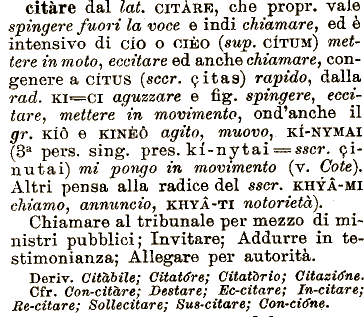 citàre dal lat. CITÀRE, che propr. vale
spingere fuori la voce e indi chiamare, ed è
intensivo di CÍO o CIÈO (sup. CÍTUM) met-
tere in moto, eccitare ed anche chiamare, con-
genere a CÍTUS (sscr. çitas) rapido, dalla
rad. KI=CI aguzzare e fig. spingere, ecci-
tare, mettere in movimento, ond'anche il
gr. KÍÔ e KINÈÔ agito, muovo, KÍ-NYMAI
(3ª pers. sing. pres. kí-nytai=sscr. çi-
nutai) mi pongo in movimento (v. Cote).
Altri pensa alla radice del sscr. KHYÂ-MI
chiamo, annuncio, KHYÂ-TI notorietà).
Chiamare al tribunale per mezzo di mi-
nistri pubblici; Invitare; Addurre in te-
stimonianza; Allegare per autorità.
Deriv. Citàbile; Citatóre; Citatòrio; Citazióne.
Cfr. Con-citàre; Destare; Ec-citare; In-citare;
Re-citare; Sollecitare; Sus-citare; Con-cióne.